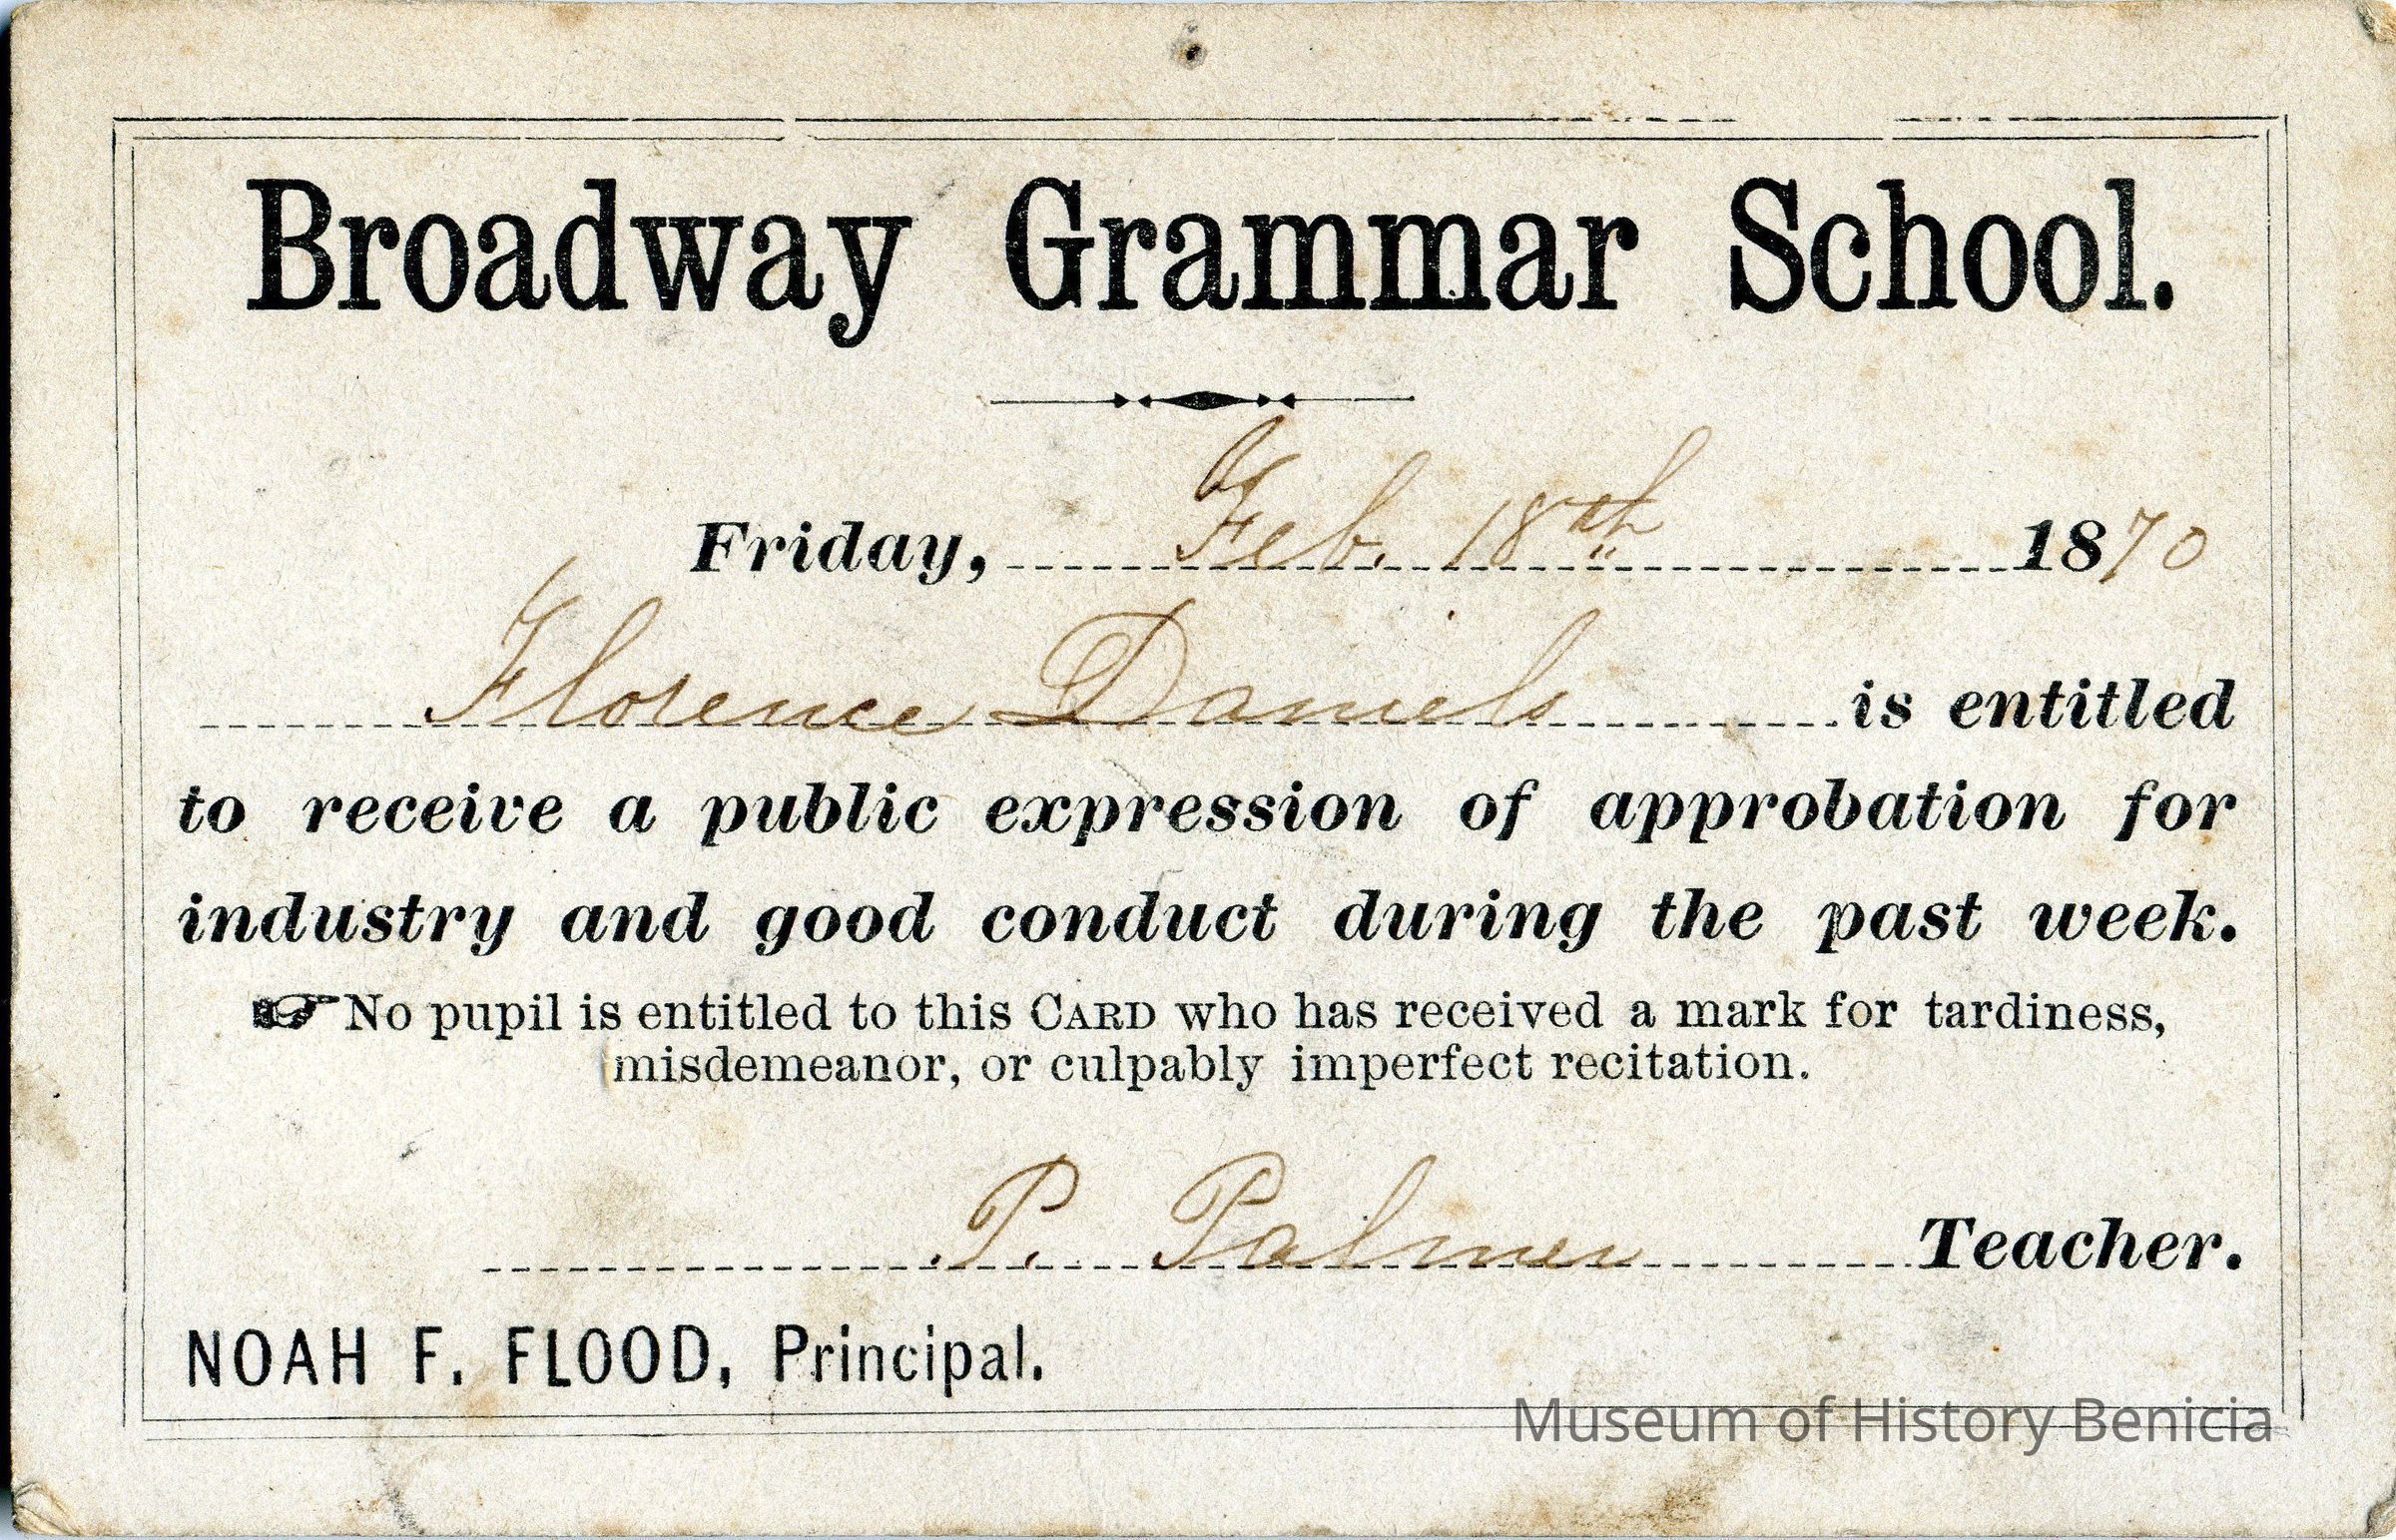 Broadway Grammar School.
Friday, Feb. 18th 1870
Florence Daniels is entitled
to receive a public expression of approbation for
industry and good conduct during the past week.
☞ No pupil is entitled to this CARD who has received a mark for tardiness,
misdemeanor, or culpably imperfect recitation.
P. Palmer Teacher.
NOAH F. FLOOD, Principal.
Museum of History Benicia